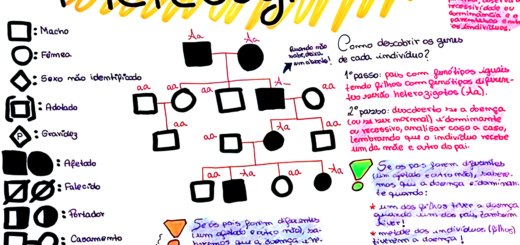 recessividade ou
dominância e o
parentesco entre
: Macho
: Fêmea
: Sexo não identificado
: Adotado
: Gravidez
: Afetado
: Falecido
: Portador
: Casamento
P
Aa
Aa
aa
aa
aa
A_
aa
aa
aa
Aa
aa
P
aa
Aa
aa
Aa
Quando não
souber, deixa
em aberto!
Como descobrir os genes
de cada indivíduo?
1º passo: pais com fenótipos iguais
tendo filhos com fenótipos diferen-
tes serão heterozigotos (Aa).
2º passo: descoberto se a doença
(ou ser normal) é dominante
ou recessivo, analisar caso a caso,
lembrando que o indivíduo recebe
um da mãe e outro do pai.
Se os pais forem diferentes
(um afetado e outro não), sabere-
mos que a doença é dominan-
te quando:
* um dos filhos tiver a doença
quando um dos pais também
tiver!
* metade dos indivíduos (filhos)
tiverem a doença!
Se os pais forem diferentes
(um afetado e outro não), sa-